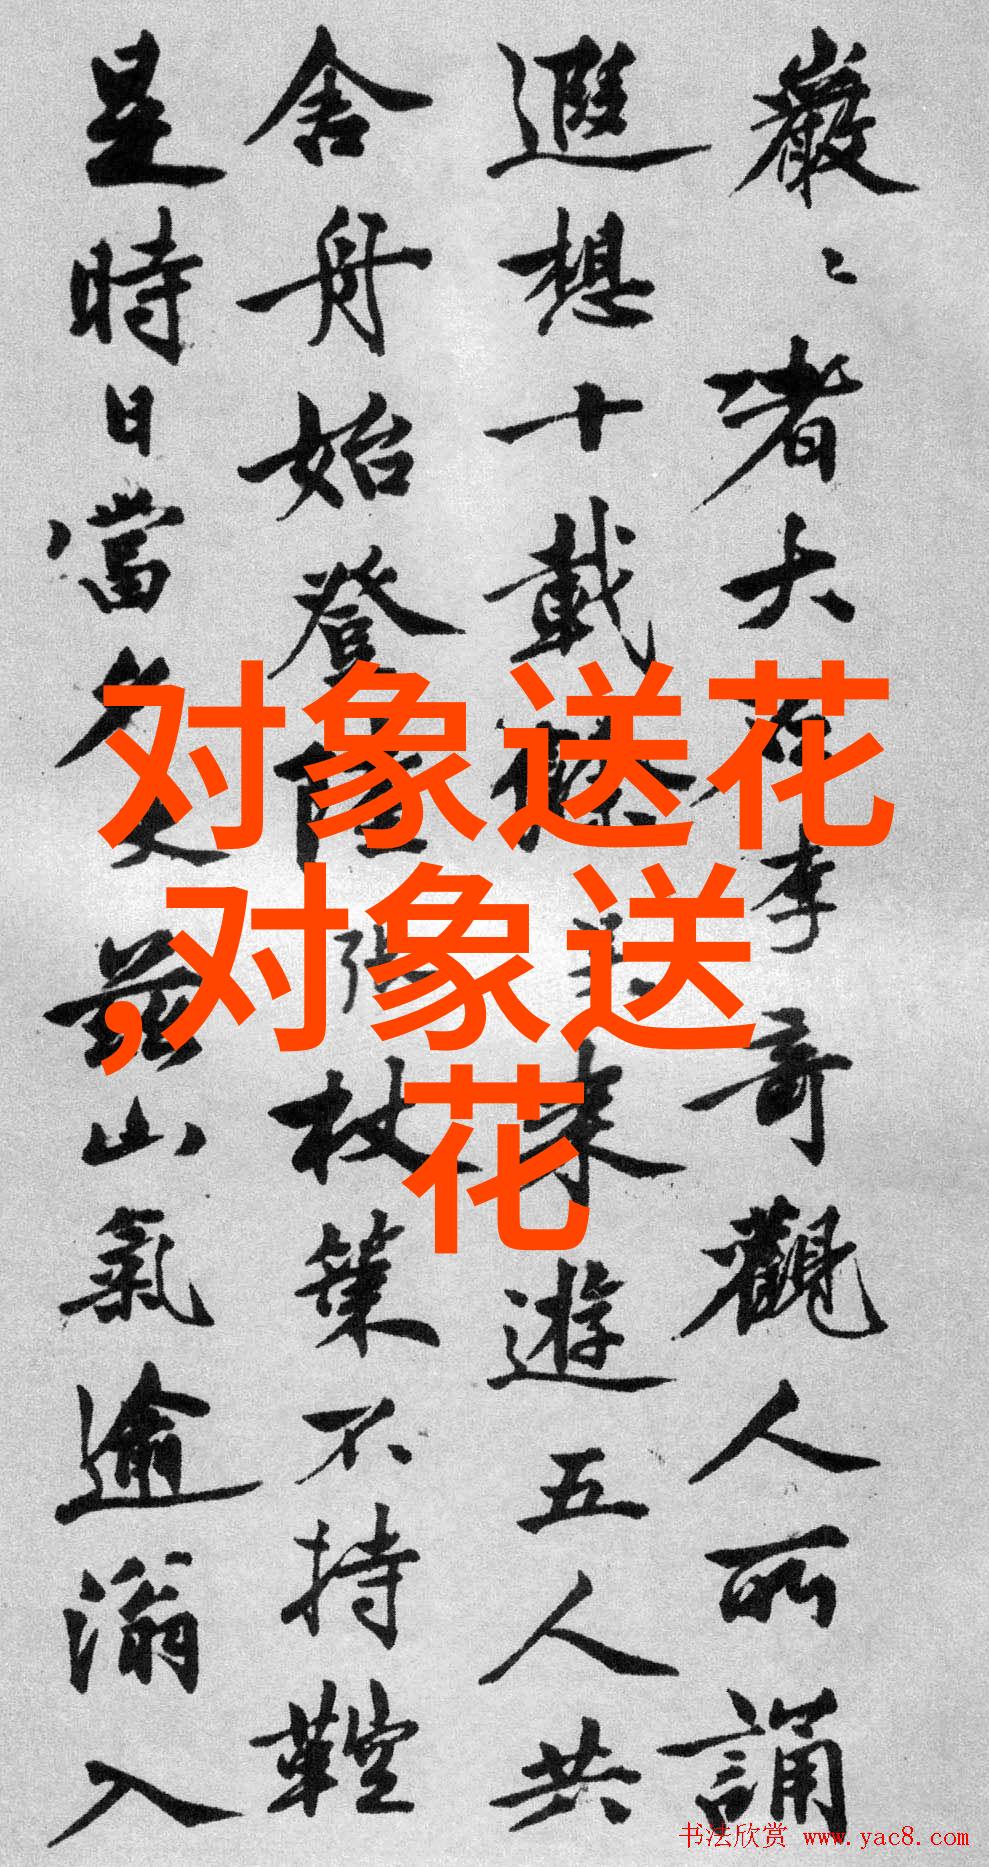 巖〻者大
李奇觀人所誦
遐想十載
來遊五人共
舍舟始登
張杖策不持鞚
是時日當
茲山氣逾滃入
对象送花
,对象送
花
书法欣赏 www.yac8.com